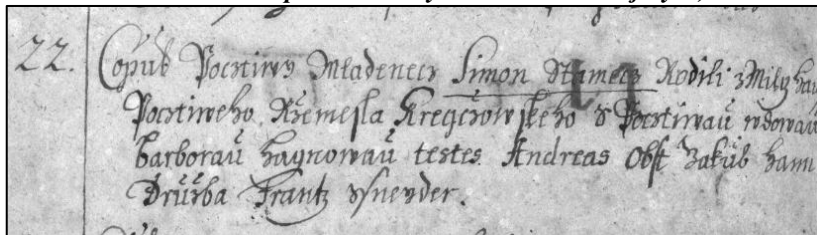 22. Copul Pocztiwy Mladenecz Simon Stamecz Rodili z Milg
Pocztiweho Rzemesla Kregczowskeho s Pocztiwau wdowau
barborau hagnowau testes Andreas Obst Jakub hann
Druzba Frantz